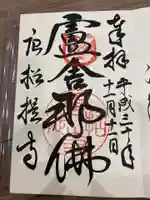 奉拝
平成三十年
十一月十二日
盧舎那佛
唐招提寺